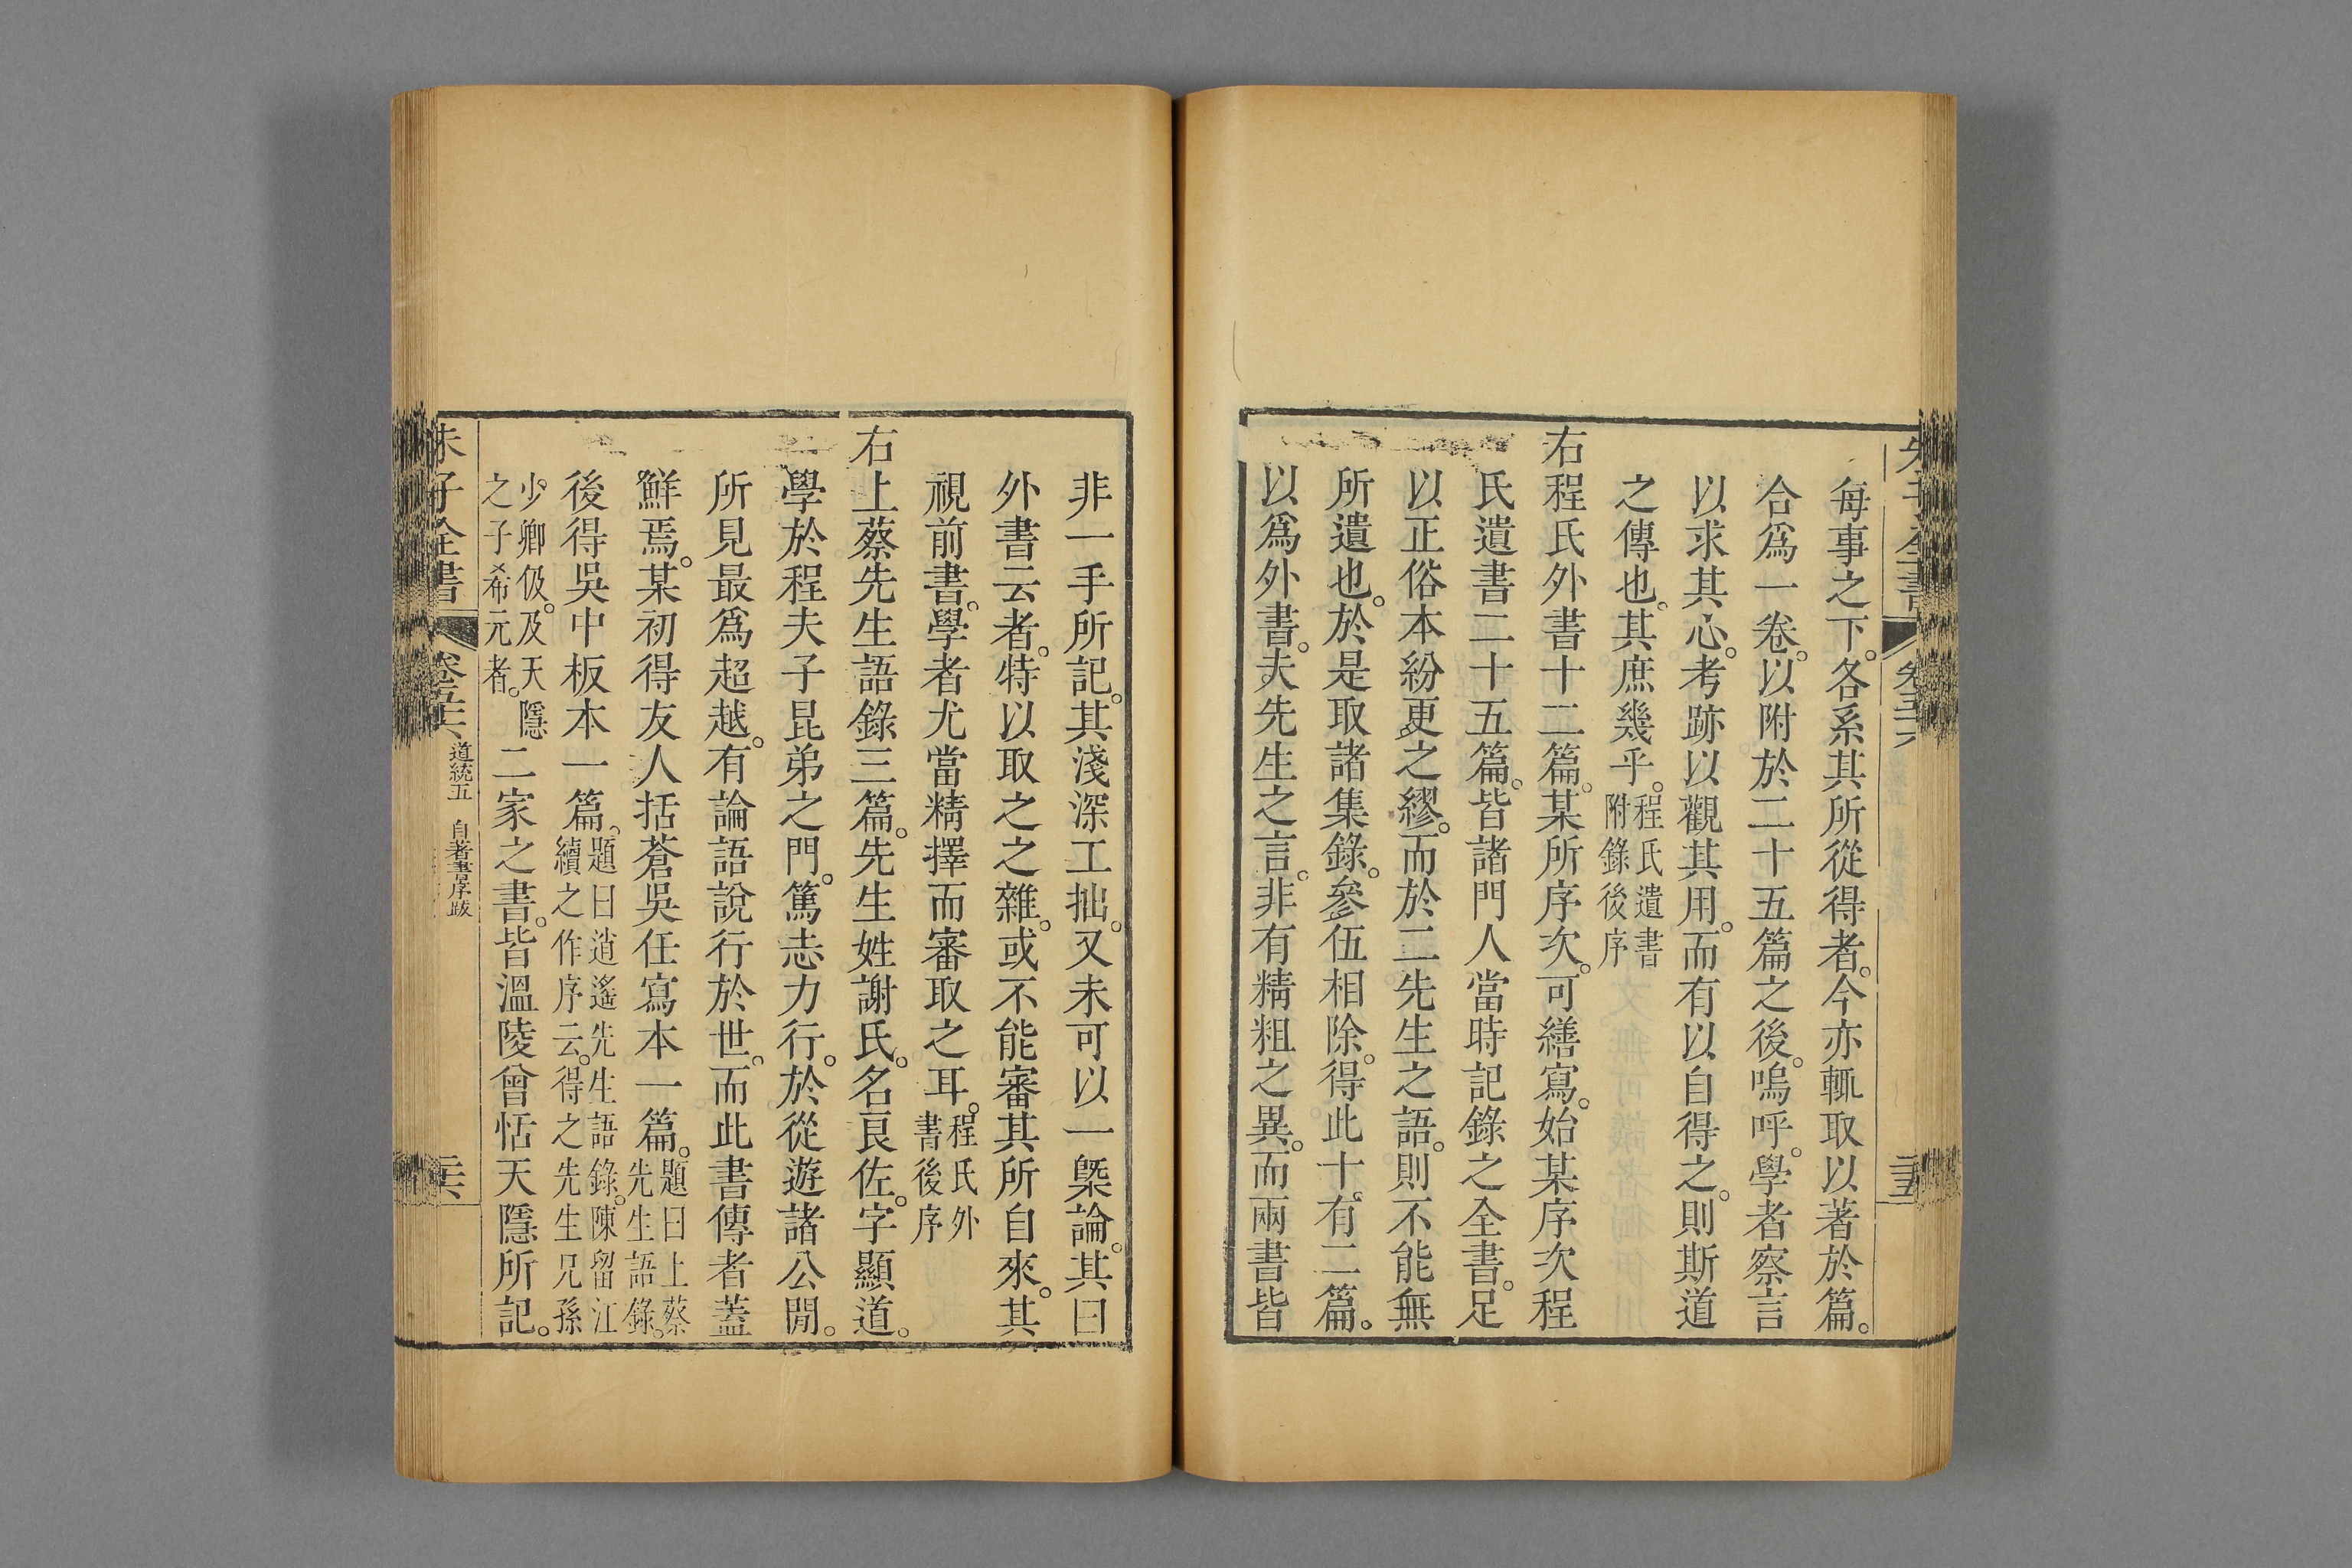 每事之下。各系其所從得者。今亦輒取以著於篇。
合爲一卷。以附於二十五篇之後。嗚呼。學者察言
以求其心。考跡以觀其用。而有以自得之。則斯道
之傳也。其庶幾乎。程氏遺書附錄後序
右程氏外書十二篇。某所序次。可繕寫。始某序次程
氏遺書二十五篇。皆諸門人當時記錄之全書。足
以正俗本紛更之繆。而於二先生之語。則不能無
所遺也。於是取諸集錄。參伍相除。得此十有二篇。
以爲外書。夫先生之言。非有精粗之異。而兩書皆
非一手所記。其淺深工拙。又未可以一槩論。其曰
外書云者。特以取之之雜。或不能審其所自來。其
視前書。學者尤當精擇而審取之耳。程氏外書後序
右上蔡先生語錄三篇。先生姓謝氏。名良佐。字顯道。
學於程夫子昆弟之門。篤志力行。於從遊諸公閒。
所見最爲超越。有論語說行於世。而此書傳者蓋
鮮焉。某初得友人括蒼吳任寫本一篇。題曰上蔡先生語錄。
後得吳中板本一篇。題曰逍遙先生語錄。陳留江續之作序云。得之先生兄孫
少卿伋。及天隱之子希元者。二家之書。皆溫陵曾恬天隱所記。
朱子全書 卷五六 道統五 自著書序跋 三六